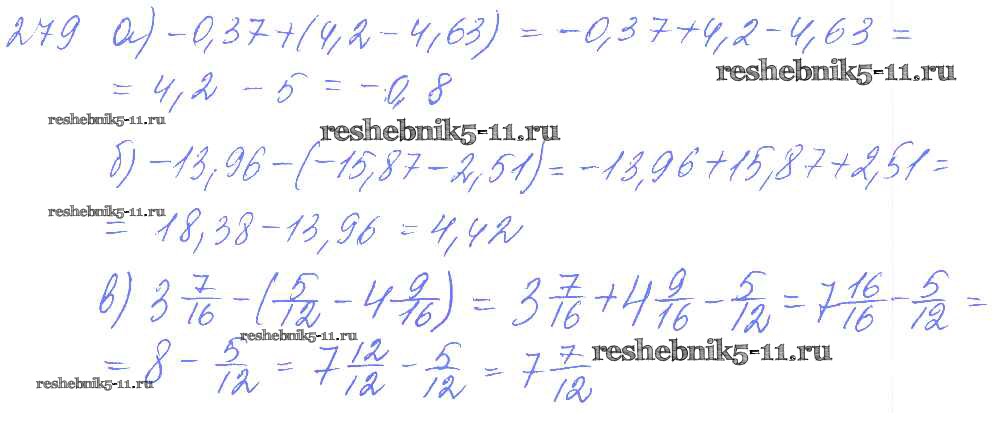 279 а) -0,37+(4,2-4,63) = -0,37+4,2-4,63 =
reshebnik5-11.ru
= 4,2 - 5 = -0,8
reshebnik5-11.ru
reshebnik5-11.ru
б) -13,96-(-15,87-2,51) = -13,96+15,87+2,51 =
reshebnik5-11.ru
= 18,38-13,96 = 4,42
в) 3 7/16 - (5/12 - 4 9/16) = 3 7/16 + 4 9/16 - 5/12 = 7 16/16 - 5/12 =
reshebnik5-11.ru
= 8 - 5/12 = 7 12/12 - 5/12 = 7 7/12
reshebnik5-11.ru
reshebnik5-11.ru